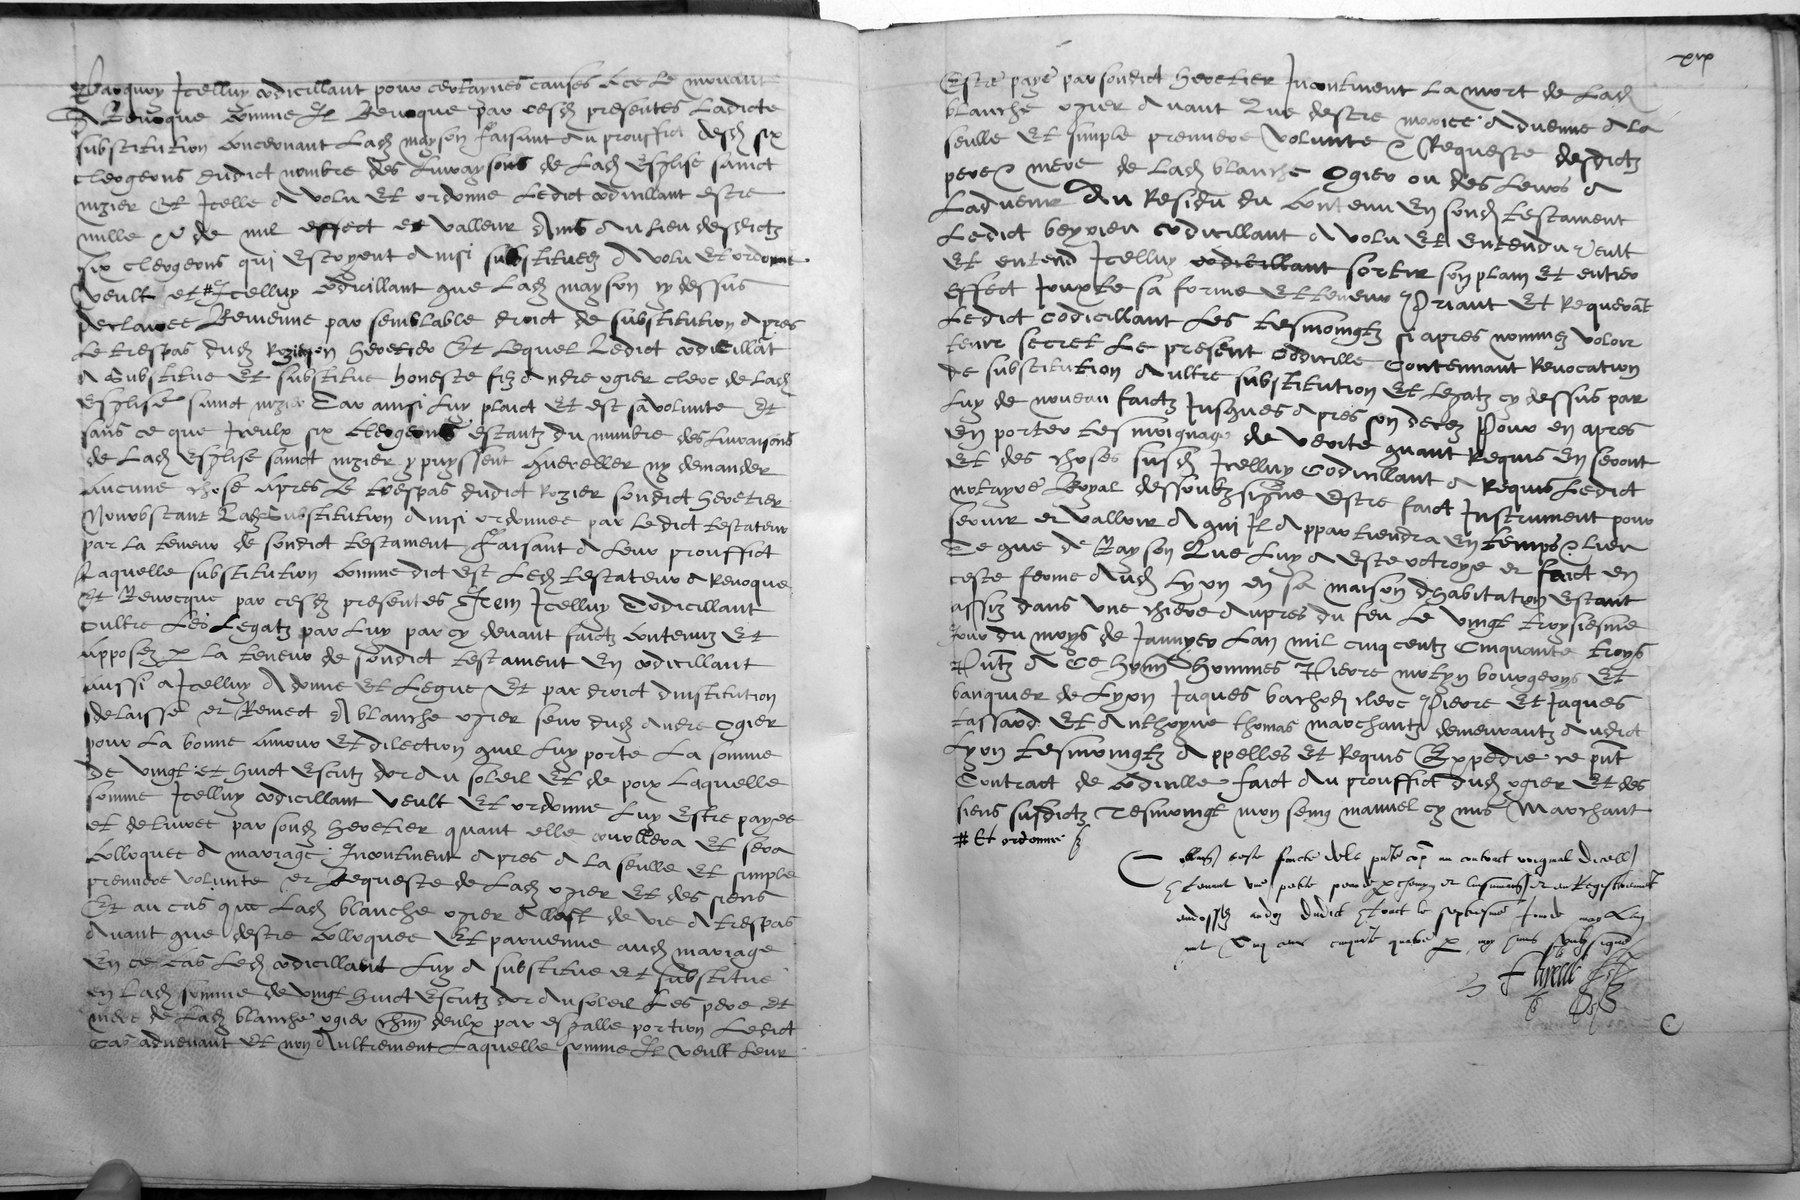 Parquoy Icelluy codicillant pour certaynes causes A ce le mouuant
A Reuoque comme Il Reuoque par cesd presentes Ladicte
substitution concernant Lad mayson faisant du prouffict desd six
clergeons dudict nombre des Liuraysons de Lad Esglise sainct
nizier Et Icelle A volu Et ordonne Ledict codicillant estre
nulle & de nul effect et valleur Ains Au lieu desdictz
six clergeons qui Estoyent Ainsi substituez A volu Et ordonne
veult et # Icelluy codicillant que Lad mayson cy dessus
declairee Reuienne par semblable droict de substitution Apres
Le trespas dud Rozier son heretier Et Lequel Ledict codicillat
A Substitue Et substitue honeste filz Andre ogier clerc de Lad
Esglise sainct nizier Car ainsi Luy plaict Et est sa volunte Et
sans ce que Iceulx six Clergeons estantz du nombre des Liuraisons
de Lad Esglise sainct nizier y puyssent quereller ny demander
Aucune chose Apres Le trespas dudict Rozier sondict heretier
Nonobstant Lad Substitution Ainsi ordonnee par Ledict testateur
par la teneur de sondict testament faisant A Leur prouffict
Laquelle substitution comme dict Est Led testateur A Reuoque
Et Reuocque par cesd presentes Item Icelluy Codicillant
oultre Les Legatz par Luy par cy deuant faictz contenuz Et
Apposez p La teneur de sondict testament En codicillant
Aussi a Icelluy A donne Et Legue Et par droict dinstitution
delaisse et Remect A blanche ogier seur dud Andre Ogier
pour La bonne Amour Et dilection quil Luy porte La somme
de vingt et huict Escutz dor du soleil Et de poix Laquelle
somme Icelluy codicillant veult Et ordonne Luy Estre payee
et deliuree par sond heretier quant elle Et sera
colloquee A mariage Incontinent Apres A la seulle Et simple
premiere volunte et Requeste de Lad ogier Et des siens
Et au cas que Lad blanche ogier Allast de vie A trespas
Auant que destre colloquee Et paruenue aud mariage
En ce cas Led codicillant Luy A substitue et substitue
en Lad somme de vingt huict Escutz dor du soleil Les pere Et
mere de Lad blanche ogier chun deulx par esgalle portion Ledict
Cas aduenant Et non Aultrement Laquelle somme Il veult Leur
xix
Estre paye par sondict heretier Incontinent La mort de Lad
blanche ogier Auant que destre mariee Aduenue A la
seulle Et simple premiere volunte & Requeste desdictz
pere & mere de Lad blanche Ogier ou des Leurs A
Laduenir Au Residu du contenu En sond testament
Ledict codicillant A volu Et entendu veult
Et entend Icelluy sortir son plain Et entier
effect Iouxte sa forme Et teneur Priant Et Requerat
Ledict codicillant Les tesmoingtz si apres nommez voloir
tenir secret Le present Codicille Contennant Reuocation
de substitution Aultre substitution Et Legatz cy dessus par
Luy de nouueau faictz Iusques Apres son decez Pour en apres
en porter tesmoignage de verite quant Requis En seront
Et des choses susd Icelluy Codicillant A Requis Ledict
notayre Royal dessoubz signe Estre faict Instrument pour
seruir et valloir A qui Il Appartiendra En temps & lieu
Ce que de Rayson Que Luy A Este octroye et faict en
ceste forme Aud Lyon en sa maison dhabitation Estant
assiz dans vne chiere Aupres du feu Le vingt troysiesme
Iour du moys de Ianuyer Lan mil cinq centz Cinquante troys
Pntz A Ce Honn hommes Pierre bourgeoys Et
banquier de Lyon Iaques clerc Pierre Et Iaques
tassard Et Anthoyne thomas marchantz demeurantz Audict
Lyon tesmoingtz Appelles Et Requis Expedie ce pnt
Contract de codicille faict Au prouffict dud ogier Et des
siens susdictz Tesmoingt mon seing manuel cy mis Marchant
# Et ordonne